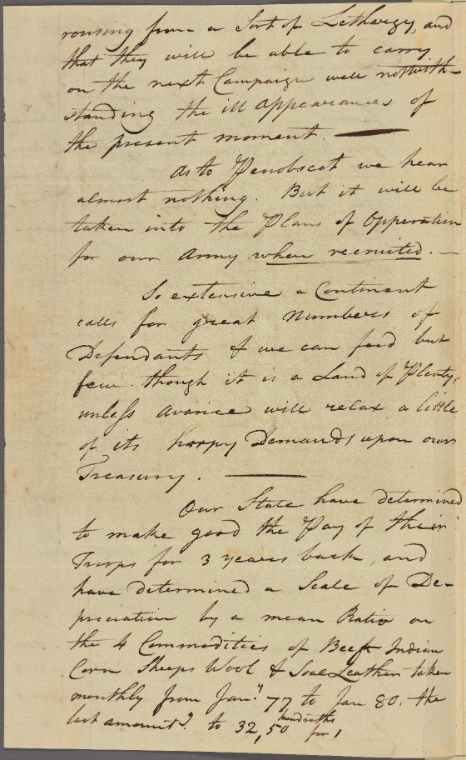 rousing from a Sort of Lethargy, and
that they will be able to carry
on the next Campaign well notwith-
standing the ill Appearances of
the present moment. —
As to Penobscot we hear
almost nothing. But it will be
taken into the Plans of Opperation
for our Army when recruited. —
So extensive a Continent
calls for great Numbers of
Defendants & we can feed but
few though it is a Land of Plenty,
unless avarice will relax a little
of its harpy Demands upon our
Treasury. —
Our State have determined
to make good the Pay of their
Troops for 3 years back, and
have determined a Scale of De-
preciation by a mean Ratio on
the 4 Commodities of Beef Indian
Corn Sheeps Wool & Sole Leather taken
monthly from Jany 77 to Jan 80. the
last amountd. to 32,50 hundredths for 1